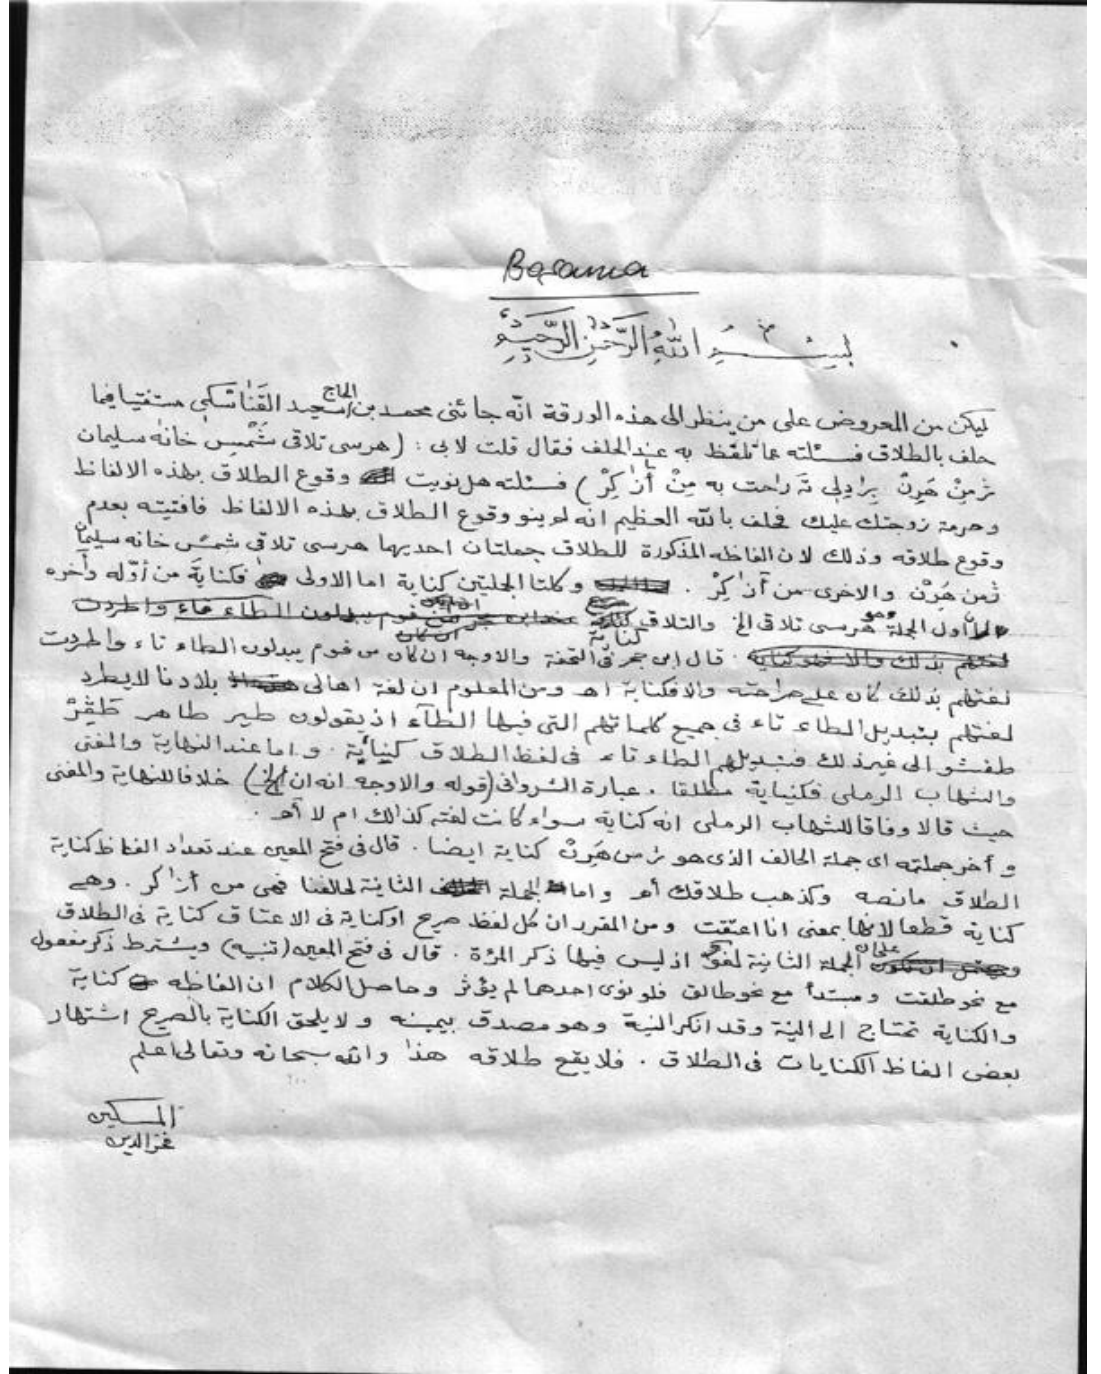 Baqamia
بِسْمِ اللّٰهِ الرَّحْمٰنِ الرَّحِيمِ
ليكن من المعروض على من ينظر الى هذه الورقة انّه جائنى محمد بن الحاج سعيد القَنَاسْكِى مستفتيا فيما
حلف بالطلاق فسئلته عما تلفّظ به عند الحلف فقال قلت لابى : ( هرسى تلاقى شَمْسِ خانه سليمان
ژ مِنْ هَرِنْ بِرَادِلِى تَه رَاحت به مِنْ أَزَا كِرْ ) فسئلته هل نويت وقوع الطلاق بهذه الالفاظ
وحرمة زوجتك عليك فحلف بالله العظيم انه لم ينو وقوع الطلاق بهذه الالفاظ فافتيته بعدم
وقوع طلاقه وذلك لان الفاظه المذكورة للطلاق جملتان احديها هرسى تلاقى شمس خانه سليمان
ژمن هَرِنْ والاخرى من أزا كِرْ . وكلتا الجملتين كناية اما الاولى فكناية من أوّله وأخره
أول الجملة وهو هرسى تلاقى الخ والتلاق كناية
قال ابن حجر فى التحفة والاوجه ان كان من قوم يبدلون الطاء تاء واطردت
لغتهم بذلك كان على صراحته والا فكناية اهـ ومن المعلوم ان لغة اهالى بلادنا لا يطرد
لغتهم بتبديل الطاء تاء فى جميع كلماتهم التى فيها الطآء اذ يقولون طير طاهر
طفشو الى غير ذلك فتبديلهم الطاء تاء فى لفظ الطلاق كناية . و اما عند النهاية والمغنى
والشهاب الرملى فكناية مطلقا . عبارة الشروانى ( قوله والاوجه انه ان الخ ) خلافا للنهاية والمغنى
حيث قالا وفاقا للشهاب الرملى انه كناية سواء كانت لغته كذالك ام لا أهـ .
و أخر جملته اى جملة الحالف الذى هو ژ من هَرِنْ كناية ايضا . قال فى فتح المعين عند تعداد الفاظ كناية
الطلاق مانصه وكذهب طلاقك أهـ و اما الجملة الثانية لحالفنا فهى من أزا كر . وهى
كناية قطعا لانها بمعنى انا اعتقت ومن المقرر ان كل لفظ صريح او كناية فى الاعتاق كناية فى الطلاق
على ان الجملة الثانية لغو اذ ليس فيها ذكر المرءة . قال فى فتح المعين ( تنبيه ) ويشترط ذكر مفعول
مع نحو طلقت ومبتدأ مع نحو طالق فلو نوى احدهما لم يؤثر وحاصل الكلام ان الفاظه كناية
والكناية تحتاج الى النية وقد انكر النية وهو مصدق بيمينه ولا يلحق الكناية بالصريح اشتهار
بعض الفاظ الكنايات فى الطلاق . فلا يقع طلاقه هذا والله سبحانه وتعالى اعلم
المسكين
فخرالدين